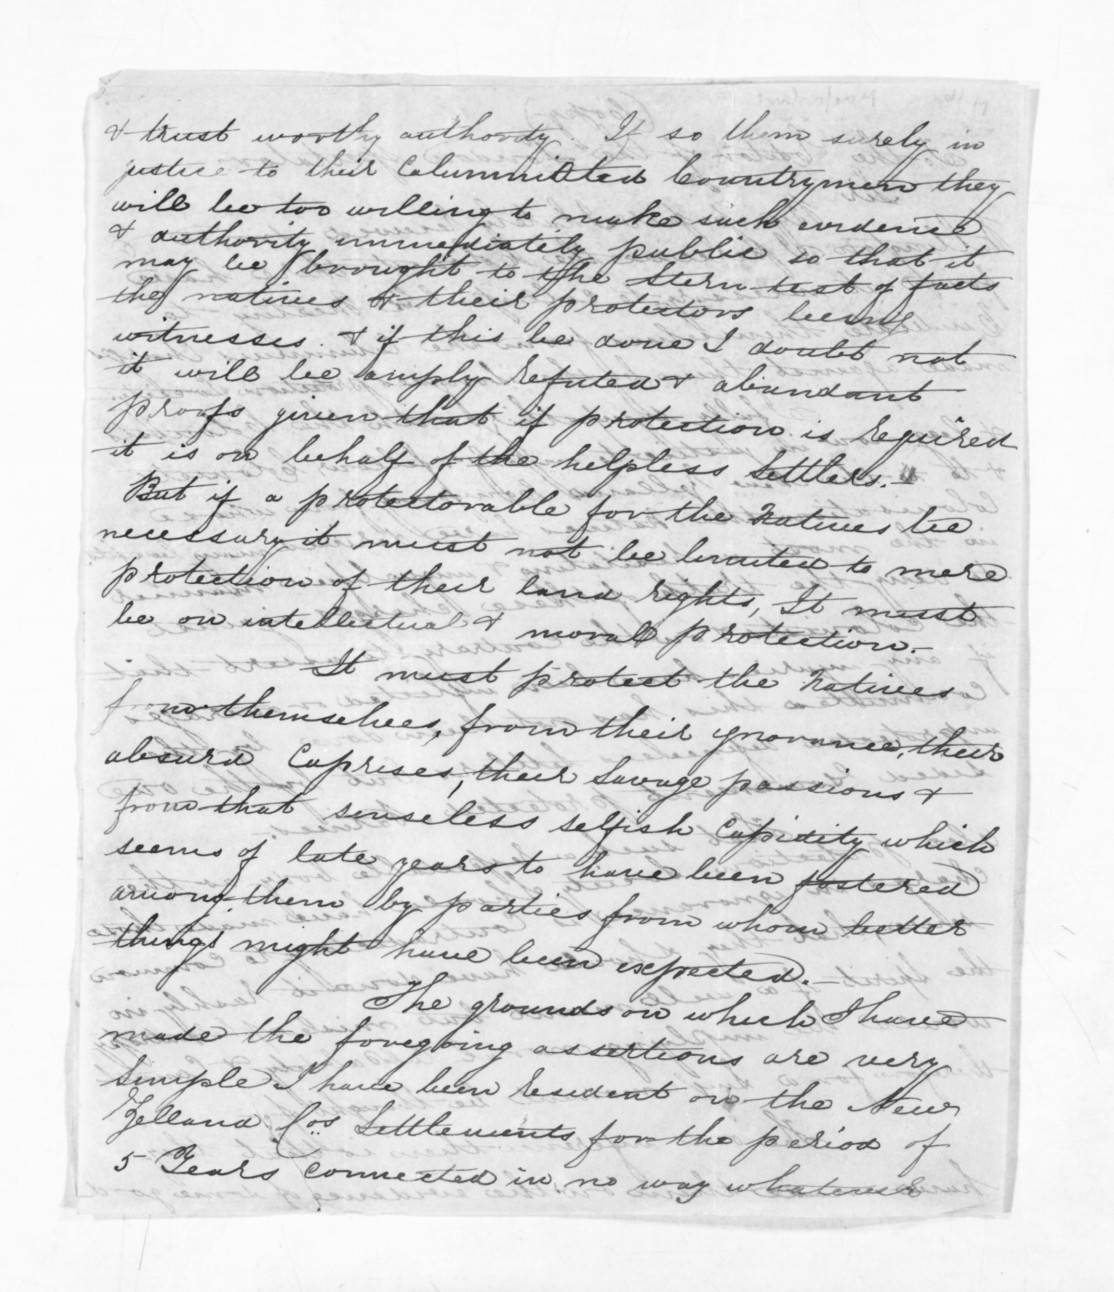 & trust worthy authority. If so then surely in
justice to their calumniated Countrymen they
will be too willing to make such evidence
& authority immediately public so that it
may be brought to the Stern test of facts
the natives & their protectors being
witnesses. & if this be done I doubt not
it will be amply refuted & abundant
proofs given that if protection is required
it is on behalf of the helpless Settlers.—
But if a protectorable for the Natives be
necessary it must not be limited to mere
protection of their land rights, It must
be on intellectual & moral protection.—
It must protect the Natives
from themselves, from their ignorance, their
absurd Caprises, their Savage passions &
from that senseless selfish Cupidity which
seems of late years to have been fostered
among them by parties from whom better
things might have been expected.—
The grounds on which I have
made the foregoing assertions are very
Simple I have been resident on the New
Zelland Cos Settlements for the period of
5 Years connected in no way whatever